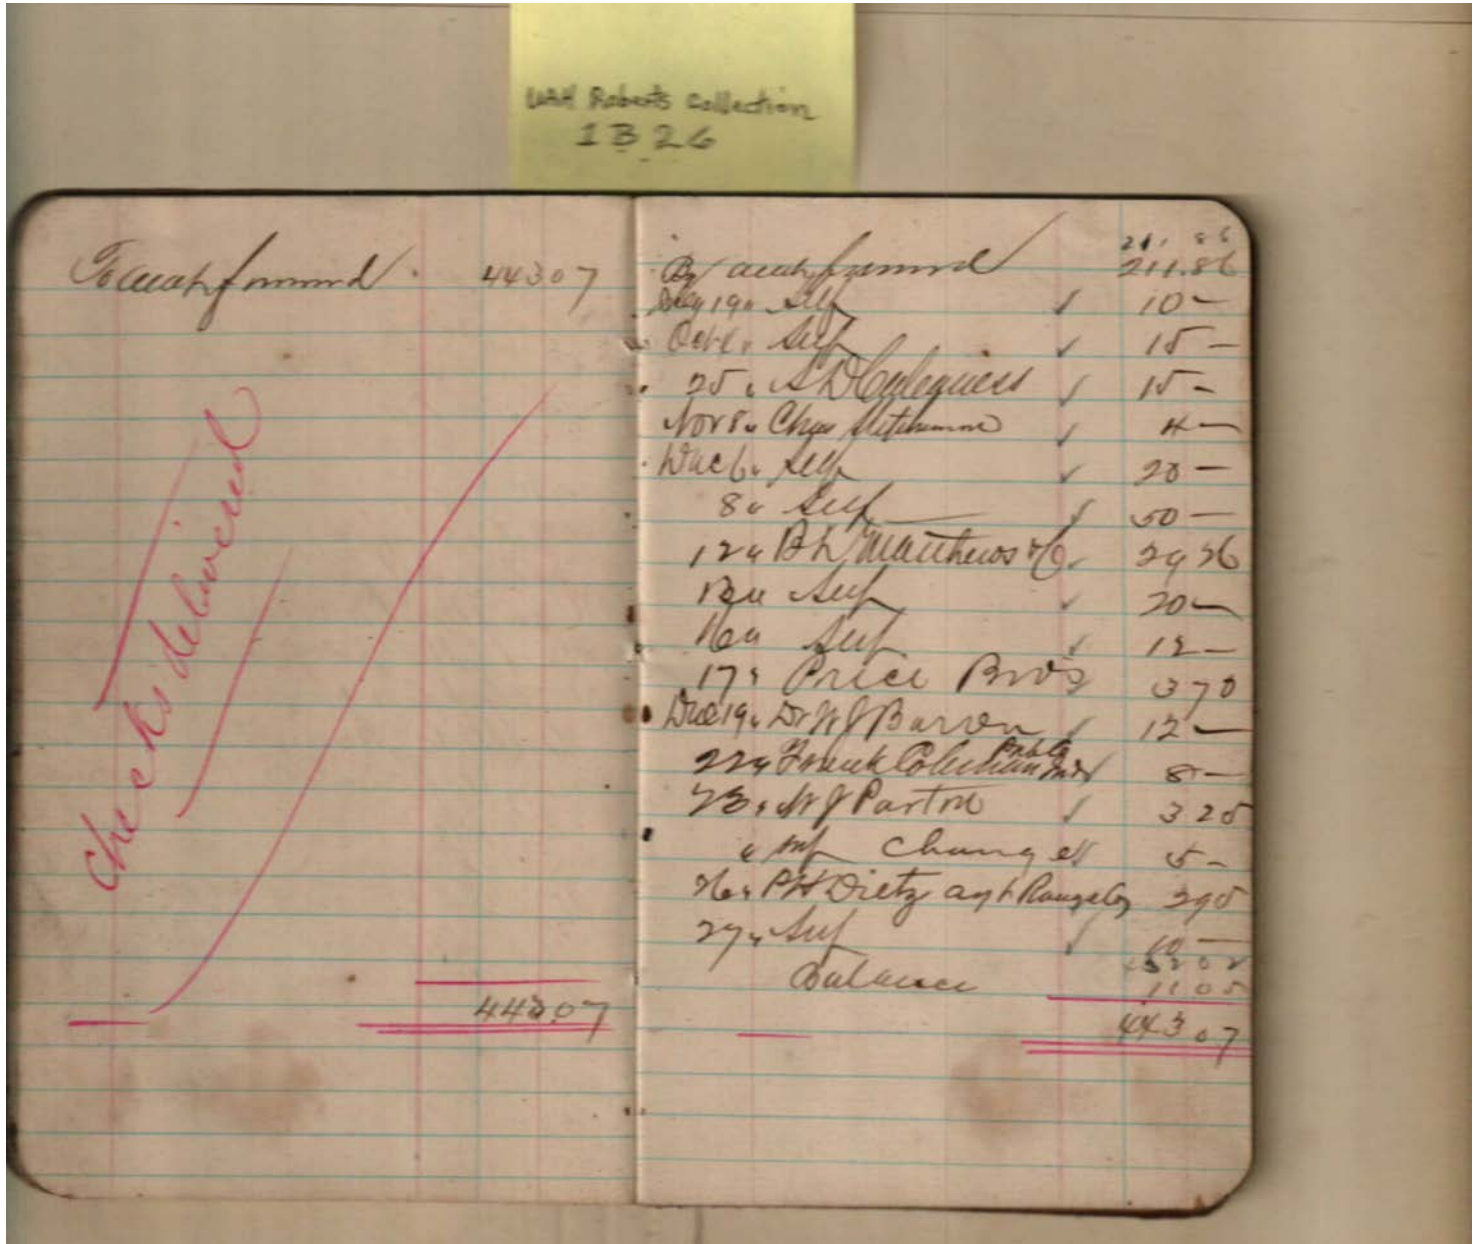 UAH Roberts Collection
1 B 26
To am't forward 443 07
Checks delivered
443 07
21 . 86
By am't forward 211.86
19 " Self ✓ 10 —
Oct " Self ✓ 15 —
25 " S D ✓ 15 —
Nov 8 " Chas ✓ 4 —
Dec 6 " Self ✓ 20 —
8 " Self ✓ 50 —
12 " B L Matthews & Co ✓ 29 26
13 " Self ✓ 20 —
16 " Self ✓ 12 —
17 " Price Bros 3 70
Dec 19 " Dr W J Barron ✓ 12 —
22 " Frank Coleman ✓ 8 —
23 " W J Parton ✓ 3 25
" Self change ✓ 5 —
26 " P H Dietz agt Range Co 2 95
27 " Self ✓ 10 —
432 02
Balance 11 05
443 07